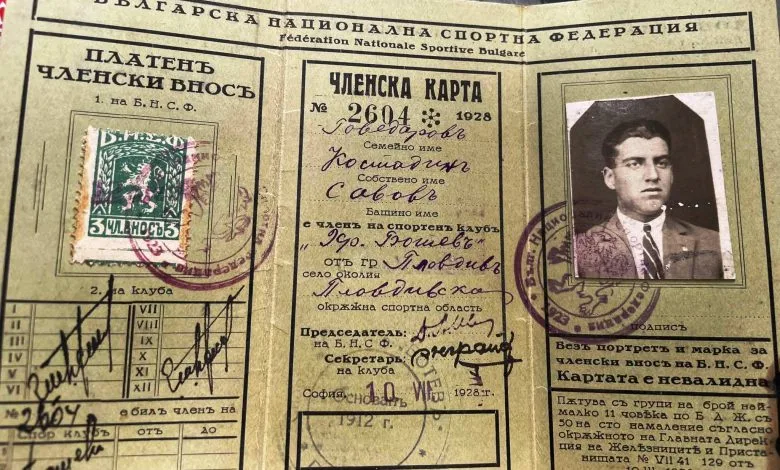 БЪЛГАРСКА НАЦИОНАЛНА СПОРТНА ФЕДЕРАЦИЯ
Fédération Nationale Sportive Bulgare
ПЛАТЕНЪ
ЧЛЕНСКИ ВНОСЪ
1. на Б. Н. С. Ф.
3 ЧЛ. ВНОСЪ 3
2. на клуба
I VII
VIII
IX
X
XI
VI XII
№ 2604 е билъ членъ на
Спор клубъ отъ до
ЧЛЕНСКА КАРТА
№ 2604 1928
Говедаровъ
Семейно име
Костадинъ
Собствено име
Савовъ
Бащино име
е членъ на спортенъ клубъ
"Хр. Ботевъ"
отъ гр Пловдивъ
село околия
Пловдивска
окрѫжна спортна область
Председатель:
на Б. Н. С. Ф.
Секретарь:
на клуба
София, 10 VII 1928 г.
Основанъ
1912 г.
подпись
Безъ портретъ и марка за
членски вносъ на Б. Н. С. Ф.
Картата е невалидна
Пѫтува съ групи на брой най-
малко 11 човѣка по Б. Д. Ж. съ
50 на сто намаление съгласно
окрѫжното на Главната Дирек
ция на Желѣзниците и Приста
нищата № VII 41 129 отъ